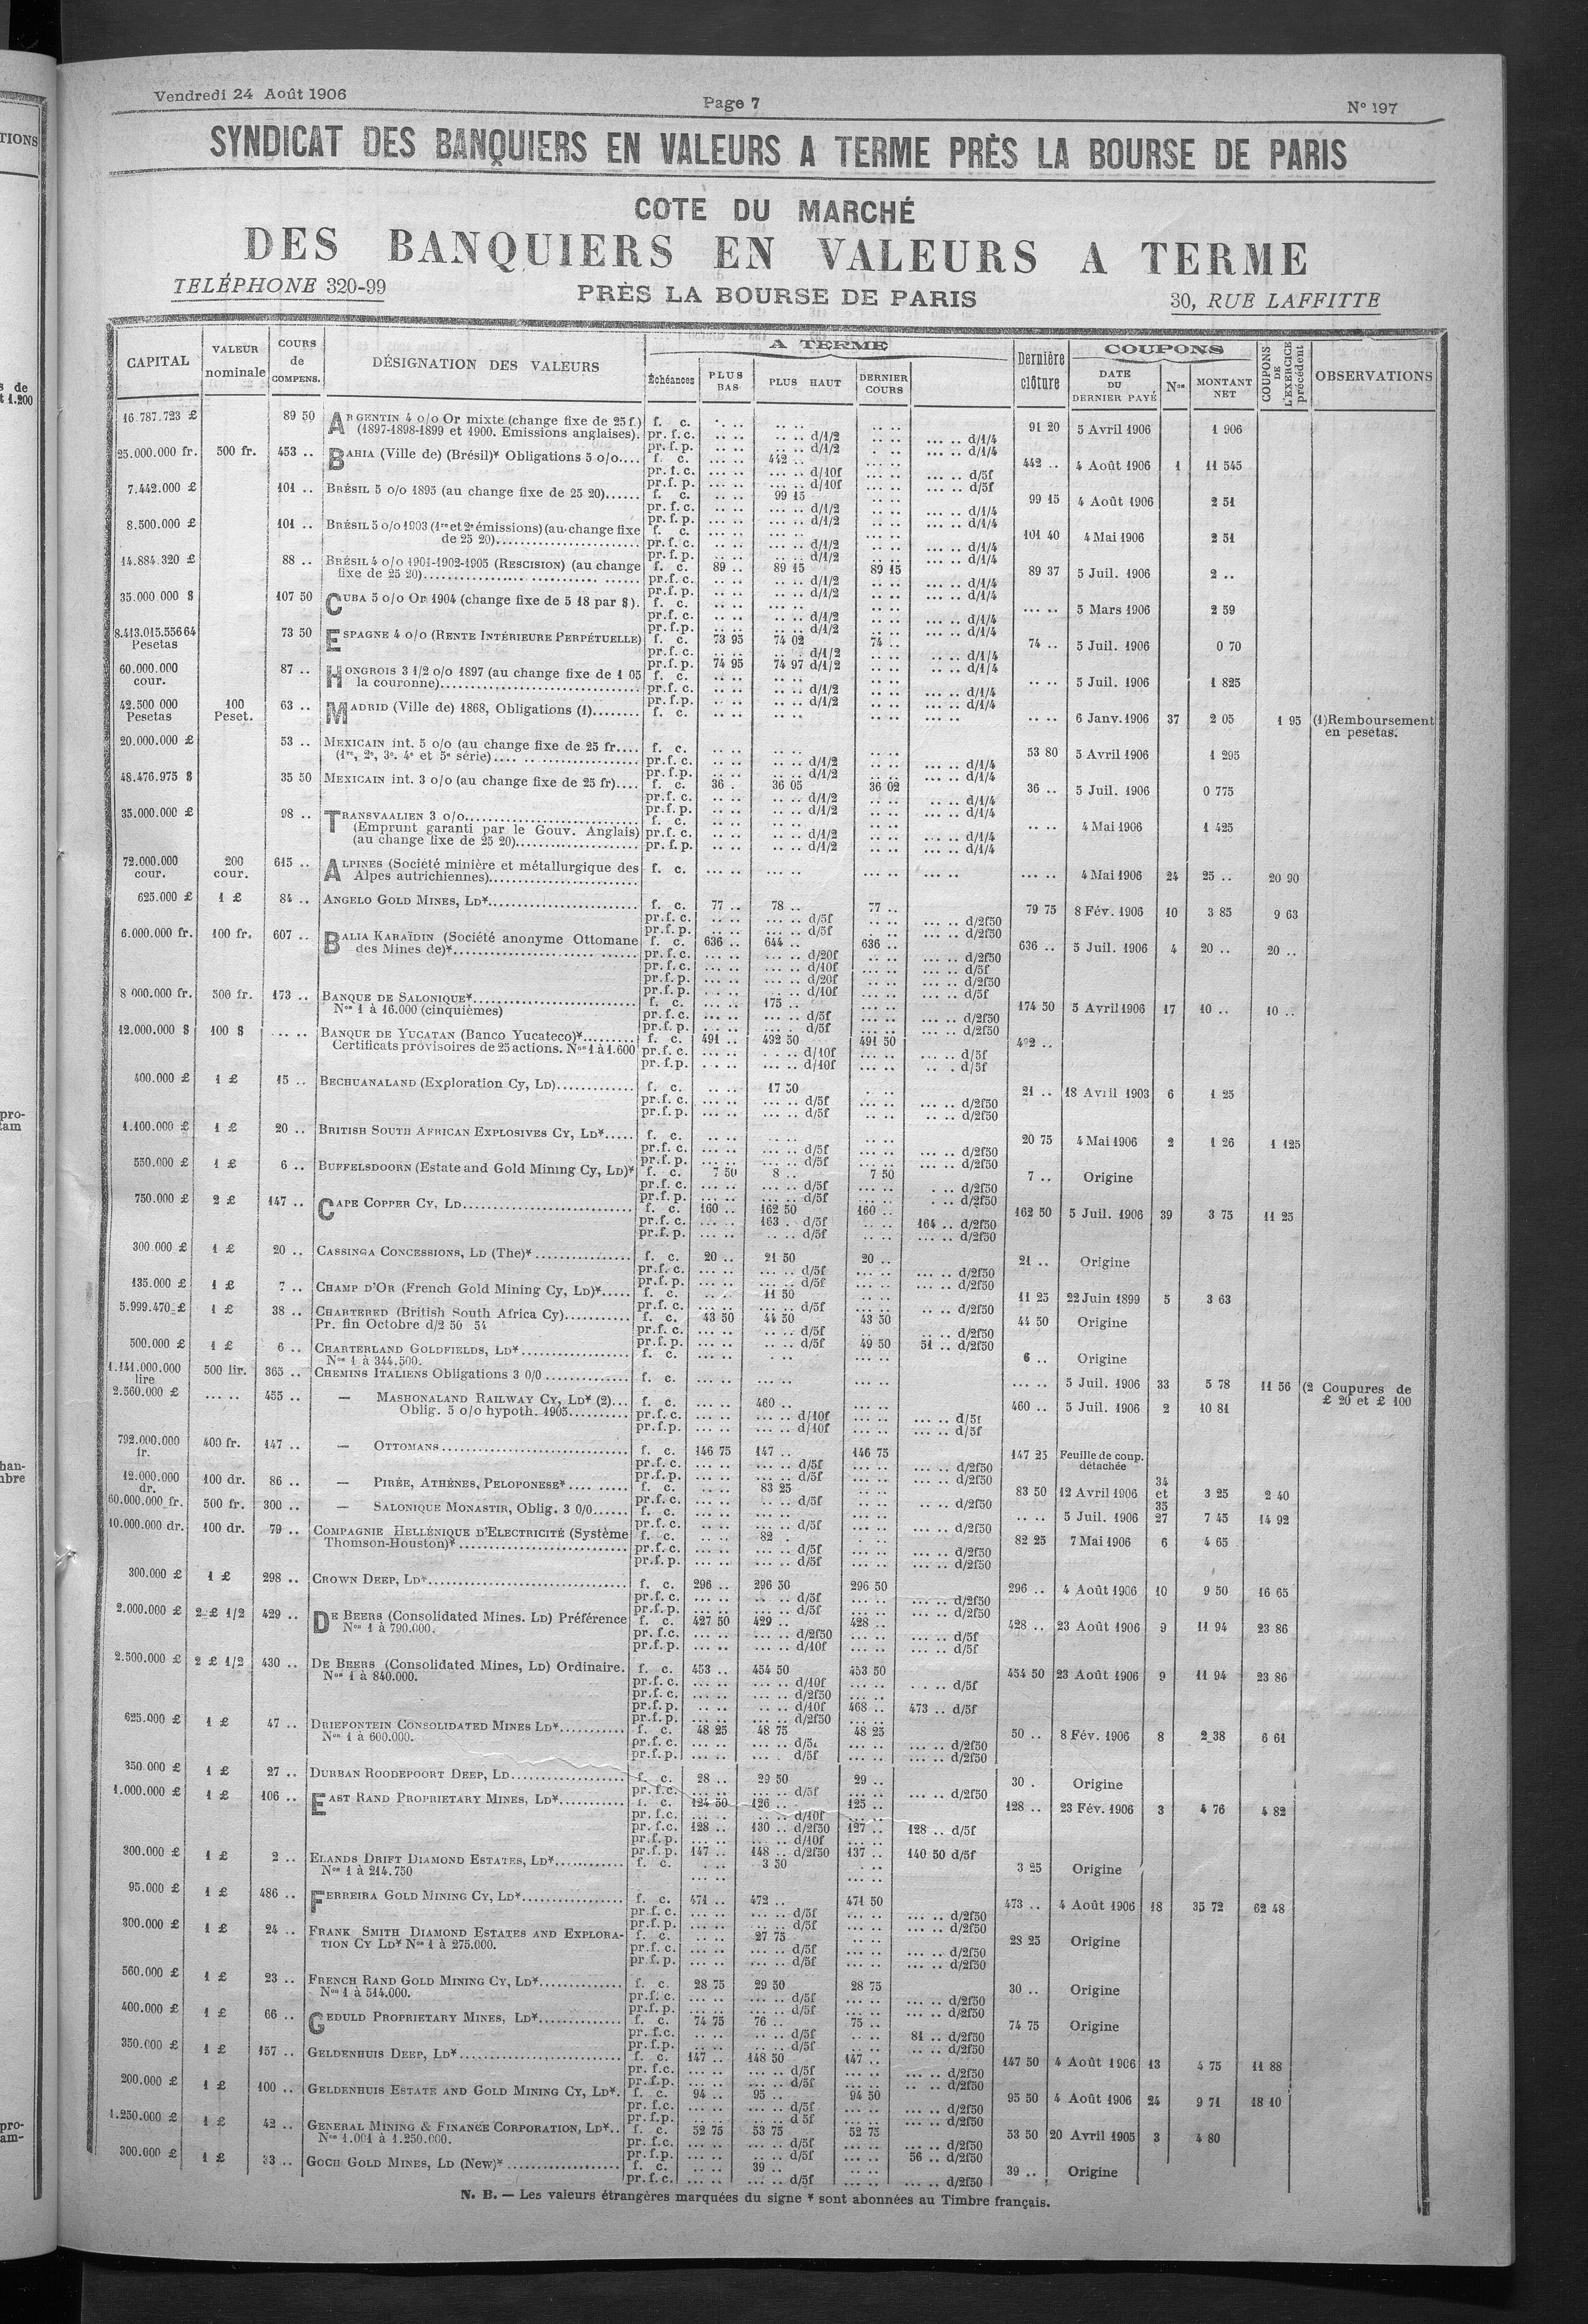 Vendredi 24 Août 1906
Page 7
N° 197
SYNDICAT DES BANQUIERS EN VALEURS A TERME PRÈS LA BOURSE DE PARIS
COTE DU MARCHÉ
DES BANQUIERS EN VALEURS A TERME
TELÉPHONE 320-99
PRÈS LA BOURSE DE PARIS
30, RUE LAFFITTE
CAPITAL
VALEUR nominale
COURS de COMPENS.
DÉSIGNATION DES VALEURS
A TERME
Échéances
PLUS BAS
PLUS HAUT
DERNIER COURS
Dernière clôture
COUPONS
DATE DU DERNIER PAYÉ
Nos
MONTANT NET
COUPONS DE L'EXERCICE précédent
OBSERVATIONS
16.787.723 £ 89 50 ARGENTIN 4 o/o Or mixte (change fixe de 25 f.) f. c. 91 20 5 Avril 1906 1 906
(1897-1898-1899 et 1900. Emissions anglaises). pr. f. c. d/1/2 d/1/4
pr. f. p. d/1/2 d/1/4
25.000.000 fr. 500 fr. 453 .. BAHIA (Ville de) (Brésil)* Obligations 5 o/o.... f. c. 442 .. 442 .. 4 Août 1906 1 11 545
pr. f. c. d/10f d/5f
pr. f. p. d/10f d/5f
7.442.000 £ 101 .. BRÉSIL 5 o/o 1895 (au change fixe de 25 20)...... f. c. 99 15 99 15 4 Août 1906 2 51
pr. f. c. d/1/2 d/1/4
pr. f. p. d/1/2 d/1/4
8.500.000 £ 101 .. BRÉSIL 5 o/o 1903 (1re et 2e émissions) (au change fixe f. c. 101 40 4 Mai 1906 2 51
de 25 20) pr. f. c. d/1/2 d/1/4
pr. f. p. d/1/2 d/1/4
14.884.320 £ 88 .. BRÉSIL 4 o/o 1901-1902-1905 (RESCISION) (au change f. c. 89 .. 89 15 89 15 89 37 5 Juil. 1906 2 ..
fixe de 25 20) pr. f. c. d/1/2 d/1/4
pr. f. p. d/1/2 d/1/4
35.000 000 $ 107 50 CUBA 5 o/o Or 1904 (change fixe de 5 18 par $). f. c. 5 Mars 1906 2 59
pr. f. c. d/1/2 d/1/4
pr. f. p. d/1/2 d/1/4
8.413.015.556 64 Pesetas 73 50 ESPAGNE 4 o/o (RENTE INTÉRIEURE PERPÉTUELLE) f. c. 73 95 74 02 74 .. 74 .. 5 Juil. 1906 0 70
pr. f. c. d/1/2 d/1/4
pr. f. p. 74 95 74 97 d/1/2 d/1/4
60.000.000 cour. 87 .. HONGROIS 3 1/2 o/o 1897 (au change fixe de 1 05 f. c. 5 Juil. 1906 1 825
la couronne) pr. f. c. d/1/2 d/1/4
pr. f. p. d/1/2 d/1/4
42.500 000 Pesetas 100 Peset. 63 .. MADRID (Ville de) 1868, Obligations (1)........ f. c. 6 Janv. 1906 37 2 05 1 95 (1) Remboursement en pesetas.
20.000.000 £ 53 .. MEXICAIN int. 5 o/o (au change fixe de 25 fr.... f. c. 53 80 5 Avril 1906 1 295
(1re, 2e, 3e. 4e et 5e série) pr. f. c. d/1/2 d/1/4
pr. f. p. d/1/2 d/1/4
48.476.975 $ 35 50 MEXICAIN int. 3 o/o (au change fixe de 25 fr).... f. c. 36 . 36 05 36 02 36 .. 5 Juil. 1906 0 775
pr. f. c. d/1/2 d/1/4
pr. f. p. d/1/2 d/1/4
35.000.000 £ 98 .. TRANSVAALIEN 3 o/o f. c. 4 Mai 1906 1 425
(Emprunt garanti par le Gouv. Anglais) pr. f. c. d/1/2 d/1/4
(au change fixe de 25 20) pr. f. p. d/1/2 d/1/4
72.000.000 cour. 200 cour. 615 .. ALPINES (Société minière et métallurgique des f. c. 4 Mai 1906 24 25 .. 20 90
Alpes autrichiennes)
625.000 £ 1 £ 84 .. ANGELO GOLD MINES, LD* f. c. 77 .. 78 .. 77 .. 79 75 8 Fév. 1906 10 3 85 9 63
pr. f. c. d/5f d/2f50
pr. f. p. d/5f d/2f50
6.000.000 fr. 100 fr. 607 .. BALIA KARAÏDIN (Société anonyme Ottomane f. c. 636 .. 644 .. 636 .. 636 .. 5 Juil. 1906 4 20 .. 20 ..
des Mines de)* pr. f. c. d/20f d/2f50
pr. f. c. d/10f d/5f
pr. f. p. d/20f d/2f50
pr. f. p. d/10f d/5f
8 000.000 fr. 500 fr. 173 .. BANQUE DE SALONIQUE* f. c. 175 174 50 5 Avril 1906 17 10 .. 10 ..
Nos 1 à 16.000 (cinquièmes) pr. f. c. d/5f d/2f50
pr. f. p. d/5f d/2f50
12.000.000 $ 100 $ BANQUE DE YUCATAN (Banco Yucateco)* f. c. 491 .. 492 50 491 50 492 ..
Certificats provisoires de 25 actions. Nos 1 à 1.600 pr. f. c. d/10f d/5f
pr. f. p. d/10f d/5f
400.000 £ 1 £ 15 .. BECHUANALAND (Exploration Cy, LD) f. c. 17 50 21 .. 18 Avril 1903 6 1 25
pr. f. c. d/5f d/2f50
pr. f. p. d/5f d/2f50
1.100.000 £ 1 £ 20 .. BRITISH SOUTH AFRICAN EXPLOSIVES CY, LD* f. c. 20 75 4 Mai 1906 2 1 26 1 125
pr. f. c. d/5f d/2f50
pr. f. p. d/5f d/2f50
550.000 £ 1 £ 6 .. BUFFELSDOORN (Estate and Gold Mining Cy, LD)* f. c. 7 50 8 .. 7 50 7 .. Origine
pr. f. c. d/5f d/2f50
pr. f. p. d/5f d/2f50
750.000 £ 2 £ 147 .. CAPE COPPER CY, LD f. c. 160 .. 162 50 160 .. 162 50 5 Juil. 1906 39 3 75 11 25
pr. f. c. 163 . d/5f 164 .. d/2f50
pr. f. p. d/5f d/2f50
300.000 £ 1 £ 20 .. CASSINGA CONCESSIONS, LD (The)* f. c. 20 .. 21 50 20 .. 21 .. Origine
pr. f. c. d/5f d/2f50
pr. f. p. d/5f d/2f50
135.000 £ 1 £ 7 .. CHAMP D'OR (French Gold Mining Cy, LD)* f. c. 11 50 11 25 22 Juin 1899 5 3 63
pr. f. c. d/5f d/2f50
5.999.470 £ 1 £ 38 .. CHARTERED (British South Africa Cy) f. c. 43 50 44 50 43 50 44 50 Origine
Pr. fin Octobre d/2 50 54 pr. f. c. d/5f d/2f50
pr. f. p. d/5f 49 50 51 .. d/2f50
500.000 £ 1 £ 6 .. CHARTERLAND GOLDFIELDS, LD* f. c. 6 .. Origine
Nos 1 à 344.500.
1.141.000.000 lire 500 lir. 365 .. CHEMINS ITALIENS Obligations 3 0/0 f. c. 5 Juil. 1906 33 5 78 11 56
2.560.000 £ 455 .. — MASHONALAND RAILWAY CY, LD* (2) f. c. 460 .. 460 .. 5 Juil. 1906 2 10 81 (2 Coupures de £ 20 et £ 100
Oblig. 5 o/o hypoth. 1905 pr. f. c. d/10f d/5f
pr. f. p. d/10f d/5f
792.000.000 fr. 400 fr. 147 .. — OTTOMANS f. c. 146 75 147 .. 146 75 147 25 Feuille de coup. détachée
pr. f. c. d/5f d/2f50
pr. f. p. d/5f d/2f50
12.000.000 dr. 100 dr. 86 .. — PIRÉE, ATHÉNES, PELOPONESE* f. c. 83 25 83 50 12 Avril 1906 34 et 35 3 25 2 40
pr. f. c. d/5f d/2f50
60.000.000 fr. 500 fr. 300 .. — SALONIQUE MONASTIR, Oblig. 3 0/0 f. c. 5 Juil. 1906 27 7 45 14 92
pr. f. c. d/5f d/2f50
10.000.000 dr. 100 dr. 79 .. COMPAGNIE HELLÉNIQUE D'ELECTRICITÉ (Système f. c. 82 . 82 25 7 Mai 1906 6 4 65
Thomson-Houston)* pr. f. c. d/5f d/2f50
pr. f. p. d/5f d/2f50
300.000 £ 1 £ 298 .. CROWN DEEP, LD* f. c. 296 .. 296 50 296 50 296 .. 4 Août 1906 10 9 50 16 65
pr. f. c. d/5f d/2f50
pr. f. p. d/5f d/2f50
2.000.000 £ 2 £ 1/2 429 .. DE BEERS (Consolidated Mines. LD) Préférence f. c. 427 50 429 .. 428 .. 428 .. 23 Août 1906 9 11 94 23 86
Nos 1 à 790.000. pr. f. c. d/2f50 d/5f
pr. f. p. d/10f d/5f
2.500.000 £ 2 £ 1/2 430 .. DE BEERS (Consolidated Mines, LD) Ordinaire. f. c. 453 .. 454 50 453 50 454 50 23 Août 1906 9 11 94 23 86
Nos 1 à 840.000. pr. f. c. d/10f d/5f
pr. f. c. d/2f50
pr. f. p. d/10f 468 .. 473 .. d/5f
pr. f. p. d/2f50
625.000 £ 1 £ 47 .. DRIEFONTEIN CONSOLIDATED MINES LD* f. c. 48 25 48 75 48 25 50 .. 8 Fév. 1906 8 2 38 6 61
Nos 1 à 600.000. pr. f. c. d/5f d/2f50
pr. f. p. d/5f d/2f50
350.000 £ 1 £ 27 .. DURBAN ROODEPOORT DEEP, LD f. c. 28 .. 29 50 29 .. 30 . Origine
pr. f. c. d/5f d/2f50
1.000.000 £ 1 £ 106 .. EAST RAND PROPRIETARY MINES, LD* f. c. 124 50 126 .. 125 .. 128 .. 23 Fév. 1906 3 4 76 4 82
pr. f. c. d/10f
pr. f. c. 128 .. 130 .. d/2f50 127 .. 128 .. d/5f
pr. f. p. d/10f
pr. f. p. 147 .. 148 .. d/2f50 137 .. 140 50 d/5f
300.000 £ 1 £ 2 .. ELANDS DRIFT DIAMOND ESTATES, LD* f. c. 3 50 3 25 Origine
Nos 1 à 214.750
95.000 £ 1 £ 486 .. FERREIRA GOLD MINING CY, LD* f. c. 471 .. 472 .. 471 50 473 .. 4 Août 1906 18 35 72 62 48
pr. f. c. d/5f d/2f50
pr. f. p. d/5f d/2f50
300.000 £ 1 £ 24 .. FRANK SMITH DIAMOND ESTATES AND EXPLORA- f. c. 27 75 28 25 Origine
TION CY LD* Nos 1 à 275.000. pr. f. c. d/5f d/2f50
pr. f. p. d/5f d/2f50
560.000 £ 1 £ 23 .. FRENCH RAND GOLD MINING CY, LD* f. c. 28 75 29 50 28 75 30 .. Origine
Nos 1 à 514.000. pr. f. c. d/5f d/2f50
pr. f. p. d/5f d/2f50
400.000 £ 1 £ 66 .. GEDULD PROPRIETARY MINES, LD* f. c. 74 75 76 .. 75 .. 74 75 Origine
pr. f. c. d/5f 81 .. d/2f50
pr. f. p. d/5f d/2f50
350.000 £ 1 £ 157 .. GELDENHUIS DEEP, LD* f. c. 147 .. 148 50 147 .. 147 50 4 Août 1906 13 4 75 11 88
pr. f. c. d/5f d/2f50
pr. f. p. d/5f d/2f50
200.000 £ 1 £ 100 .. GELDENHUIS ESTATE AND GOLD MINING CY, LD*. f. c. 94 .. 95 .. 94 50 95 50 4 Août 1906 24 9 71 18 10
pr. f. c. d/5f d/2f50
pr. f. p. d 5f d/2f50
1.250.000 £ 1 £ 42 .. GENERAL MINING & FINANCE CORPORATION, LD*.. f. c. 52 75 53 75 52 75 53 50 20 Avril 1905 3 4 80
Nos 1.001 à 1.250.000. pr. f. c. d/5f d/2f50
pr. f. p. d/5f 56 .. d/2f50
300.000 £ 1 £ 33 .. GOCH GOLD MINES, LD (New)* f. c. 39 .. 39 .. Origine
pr. f. c. d/5f d/2f50
N. B. — Les valeurs étrangères marquées du signe * sont abonnées au Timbre français.